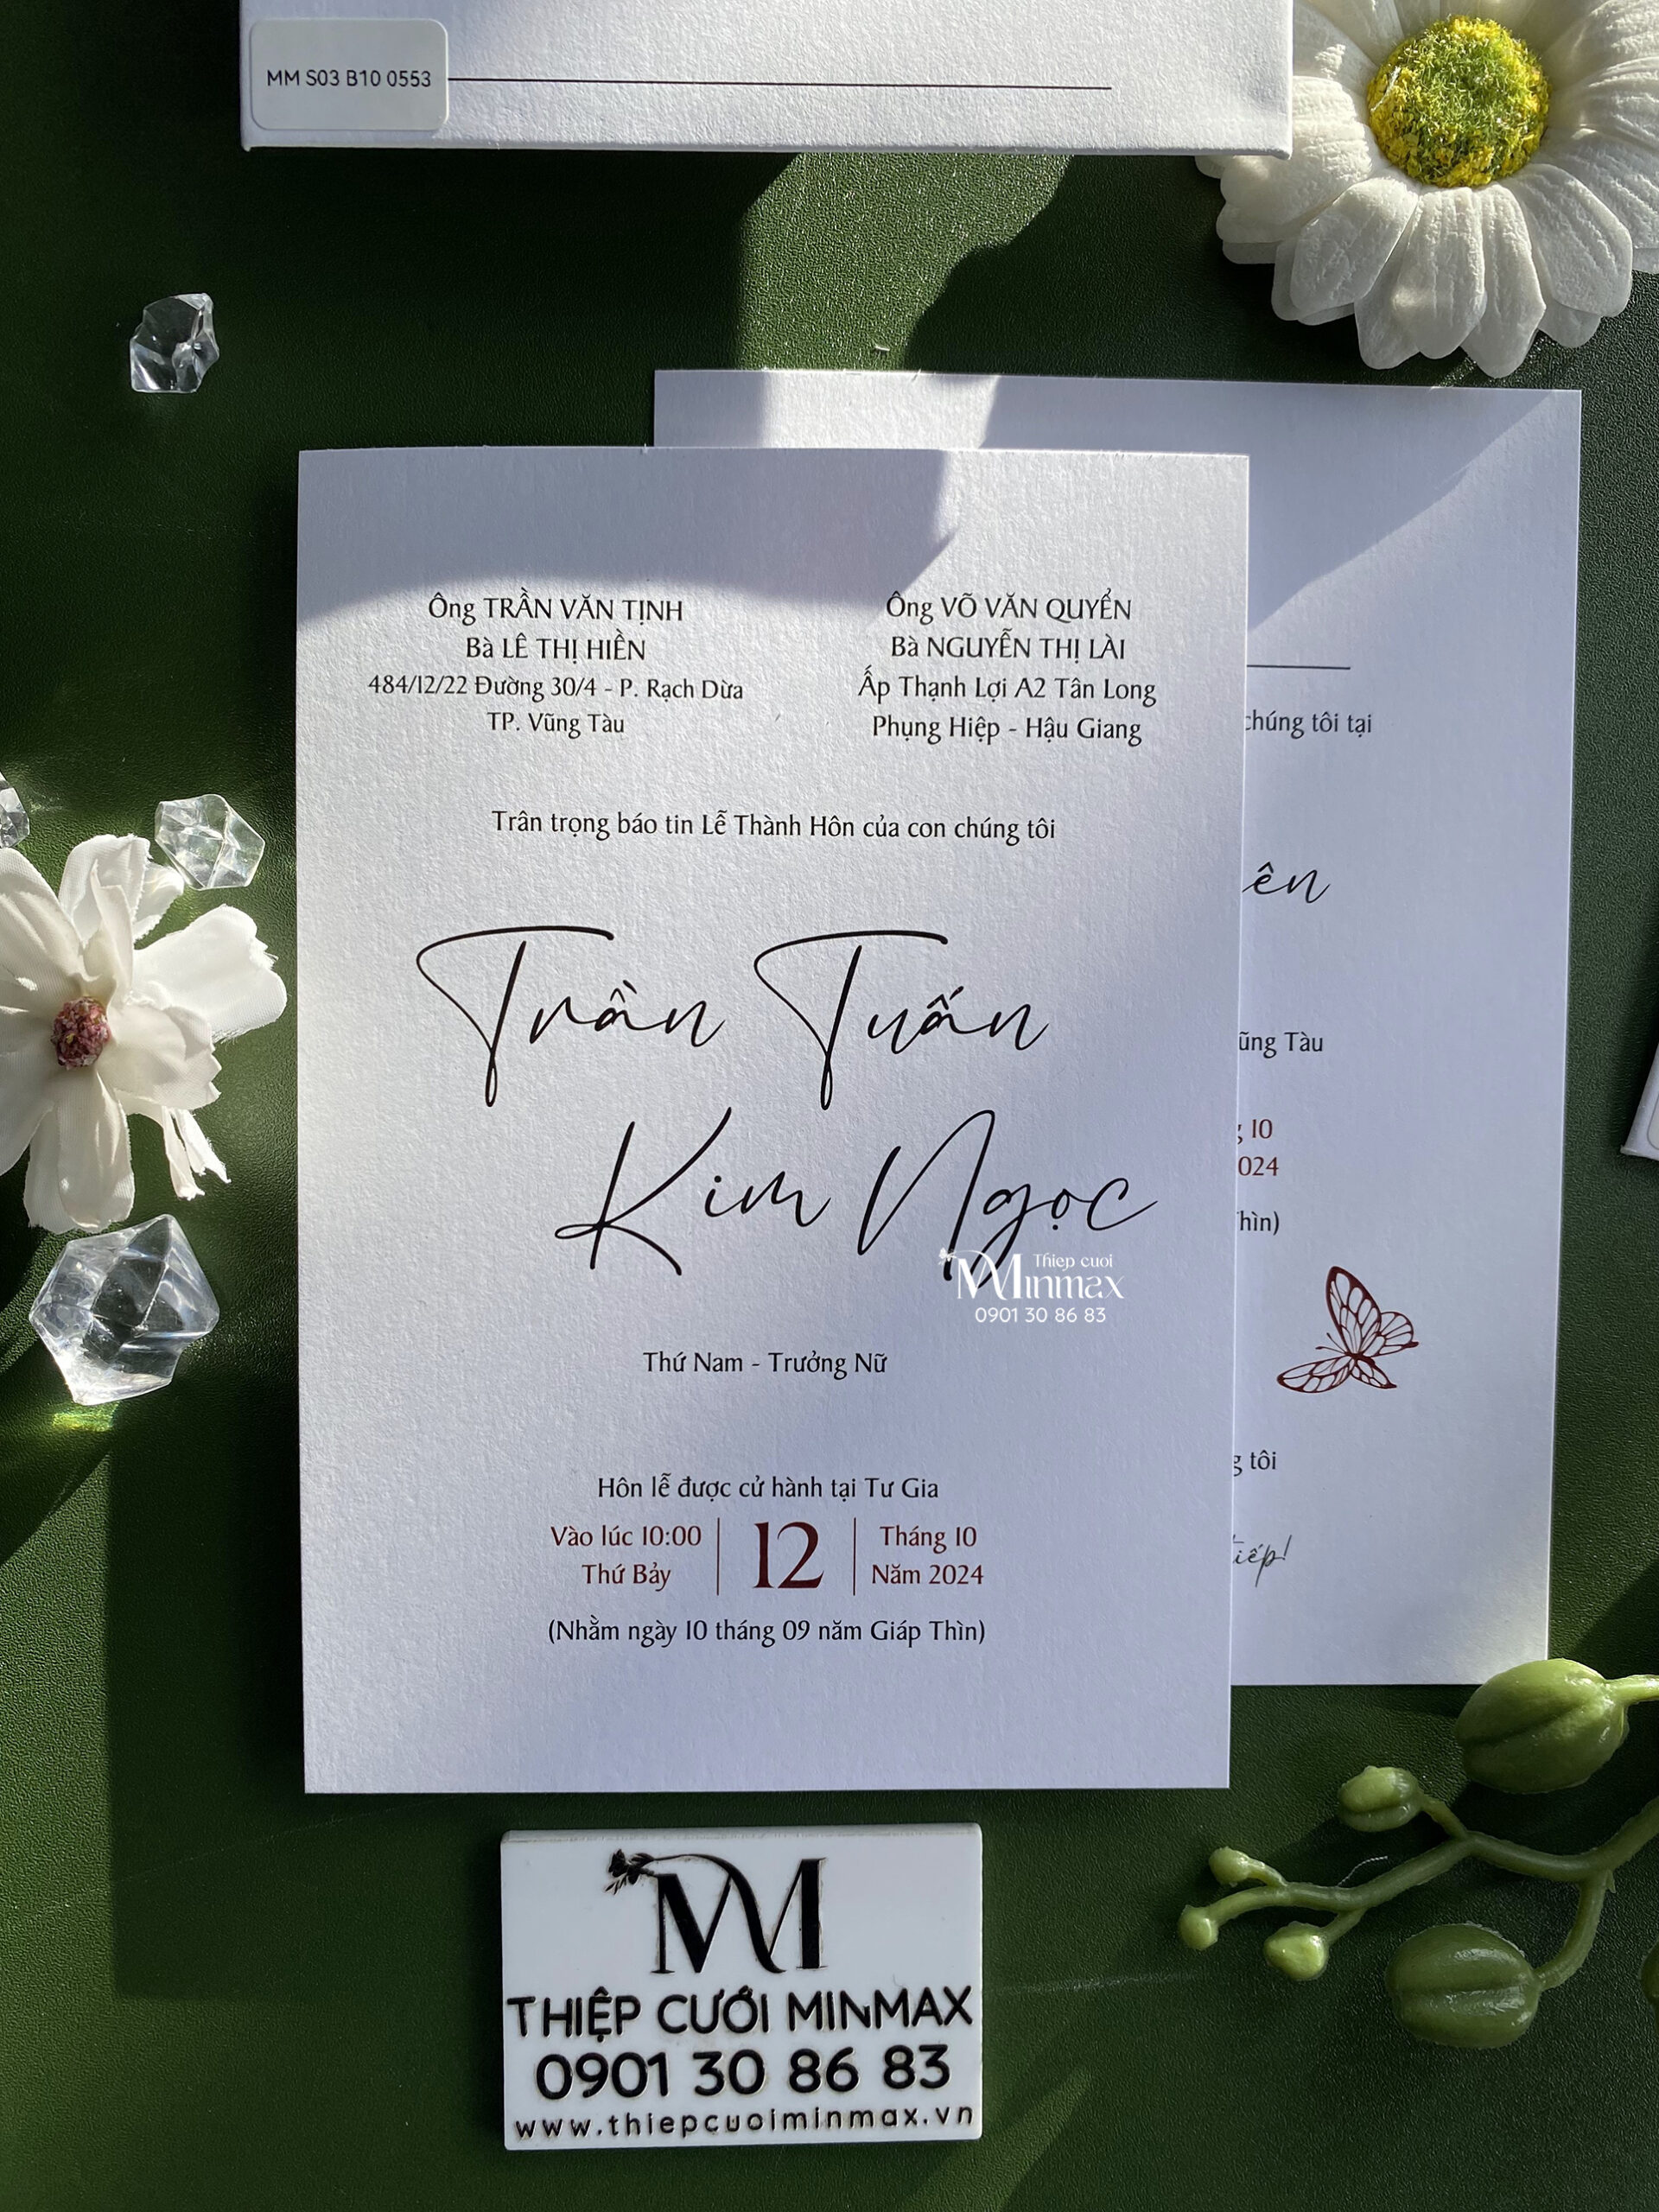 MM S03 B10 0553
Ông TRẦN VĂN TỊNH
Bà LÊ THỊ HIỀN
484/12/22 Đường 30/4 - P. Rạch Dừa
TP. Vũng Tàu
Ông VÕ VĂN QUYỂN
Bà NGUYỄN THỊ LÀI
Ấp Thạnh Lợi A2 Tân Long
Phụng Hiệp - Hậu Giang
Trân trọng báo tin Lễ Thành Hôn của con chúng tôi
Trần Tuấn
Kim Ngọc
Thiep cuoi
Minmax
0901 30 86 83
Thứ Nam - Trưởng Nữ
Hôn lễ được cử hành tại Tư Gia
Vào lúc 10:00
Thứ Bảy
12
Tháng 10
Năm 2024
(Nhằm ngày 10 tháng 09 năm Giáp Thìn)
chúng tôi tại
ên
ũng Tàu
10
024
hìn)
tôi
tiếp!
M
THIỆP CƯỚI MINMAX
0901 30 86 83
www.thiepcuoiminmax.vn